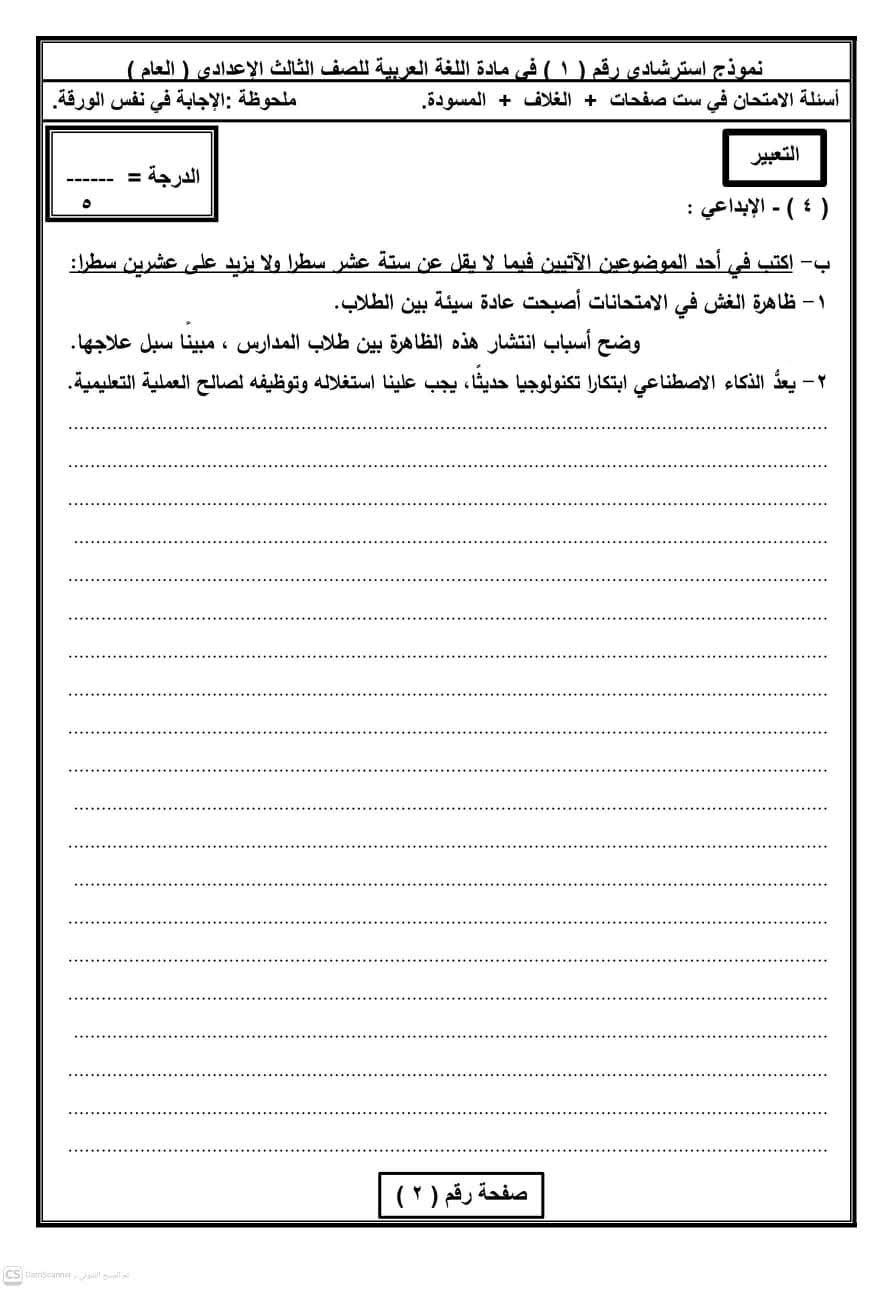 نموذج استرشادي رقم ( ١ ) في مادة اللغة العربية للصف الثالث الإعدادي ( العام )
أسئلة الامتحان في ست صفحات + الغلاف + المسودة. ملحوظة :الإجابة في نفس الورقة.
التعبير
الدرجة = ------
٥
( ٤ ) - الإبداعي :
ب- اكتب في أحد الموضوعين الآتيين فيما لا يقل عن ستة عشر سطرا ولا يزيد على عشرين سطرا:
١- ظاهرة الغش في الامتحانات أصبحت عادة سيئة بين الطلاب.
وضح أسباب انتشار هذه الظاهرة بين طلاب المدارس ، مبينًا سبل علاجها.
٢- يعدُّ الذكاء الاصطناعي ابتكارا تكنولوجيا حديثًا، يجب علينا استغلاله وتوظيفه لصالح العملية التعليمية.
صفحة رقم ( ٢ )
CS CamScanner تم المسح الضوئي بـ